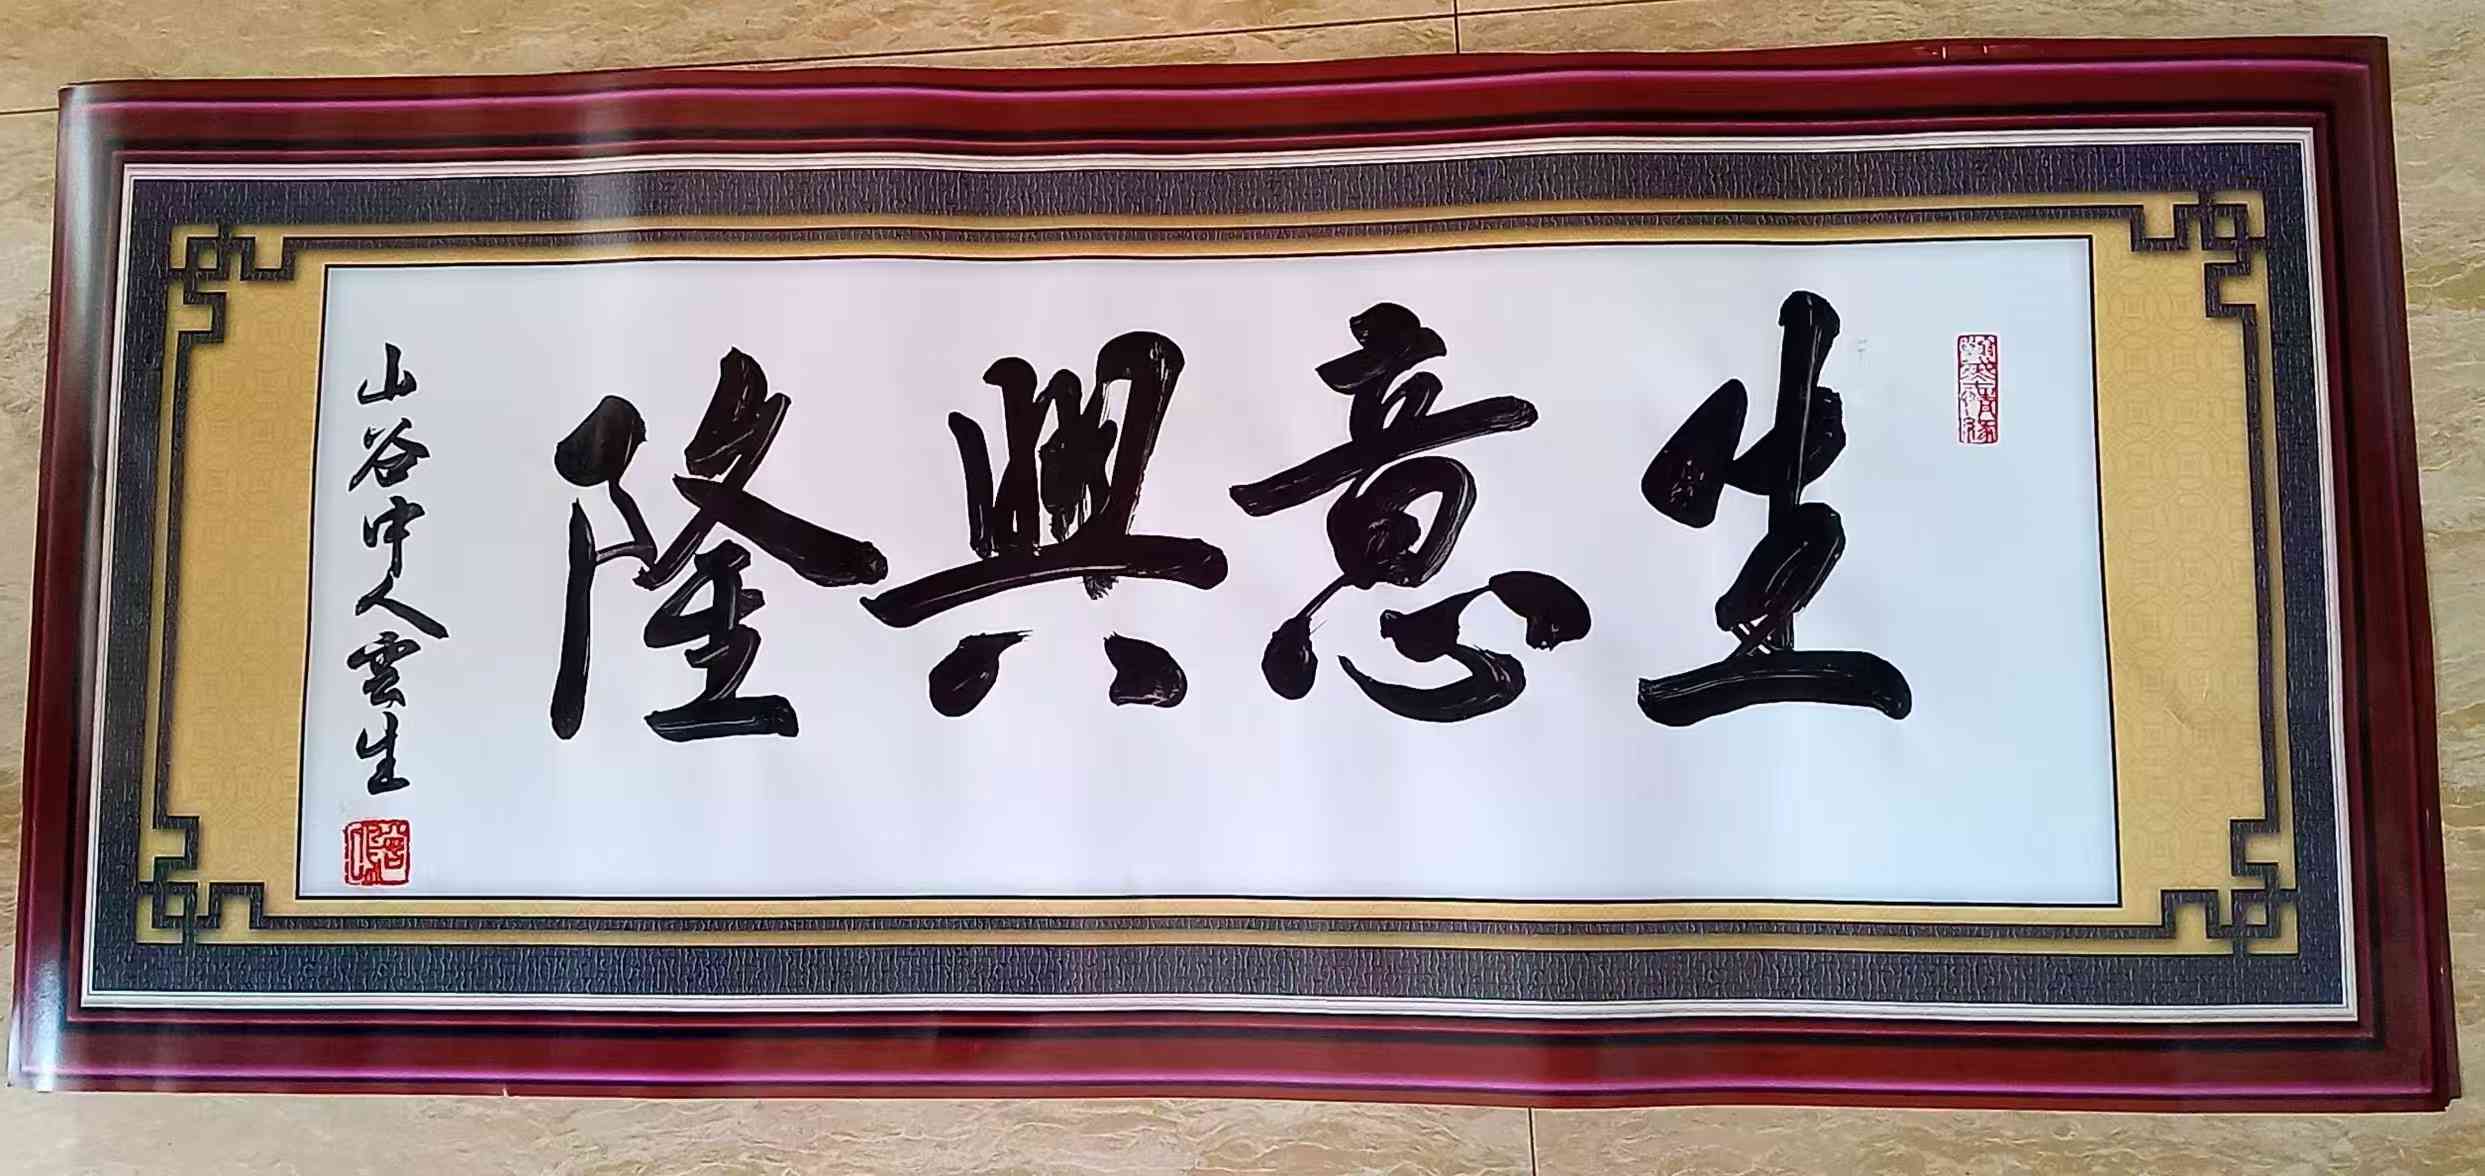 生意興隆
山谷中人雲生